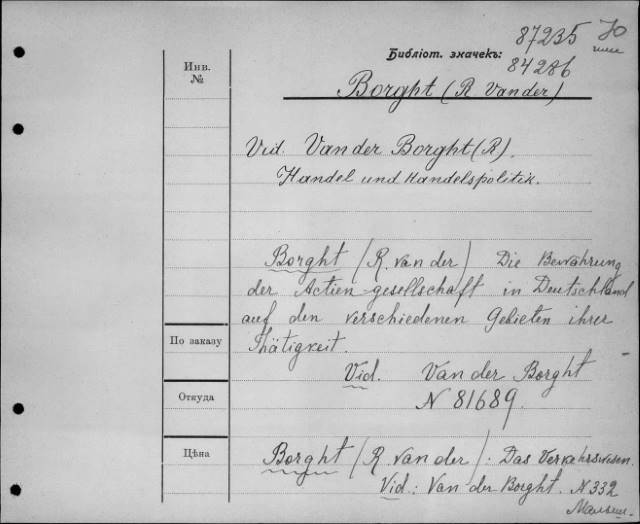 87235 70
Инв.
№
Библіот. значекъ:
84286
Borght (R Vander)
Vid. Van der Borght (R).
Handel und Handelspolitik.
Borght (R. van der) Die Bewährung
der Actien-gesellschaft in Deutschland
auf den verschiedenen Gebieten ihrer
Thätigkeit.
По заказу
Vid. Van der Borght
N 81689.
Откуда
Цѣна
Borght (R. van der): Das Verkehrswesen.
Vid: Van der Borght. N 332